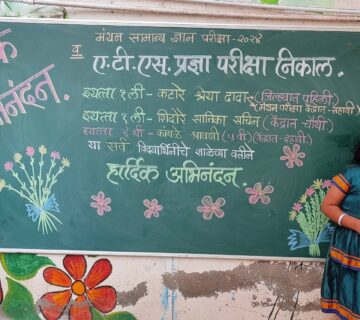 मंथन सामान्य ज्ञान परीक्षा - २०२४
व
ए.टी.एस. प्रज्ञा परीक्षा निकाल.
इयत्ता १ली - कटारे श्रेया दादा (जिल्ह्यात पहिली)
मंथन परीक्षा केंद्रात -
इयत्ता १ ली - शिवारे सानिका सचिन (केंद्रात - चौथी)
इयत्तर ४ थी - कांबळे श्रावणी (५ वी) (केंद्रात -
या सर्व विद्यार्थिनींचे शाळेच्या वतीने
हार्दिक अभिनंदन.
नंदन.